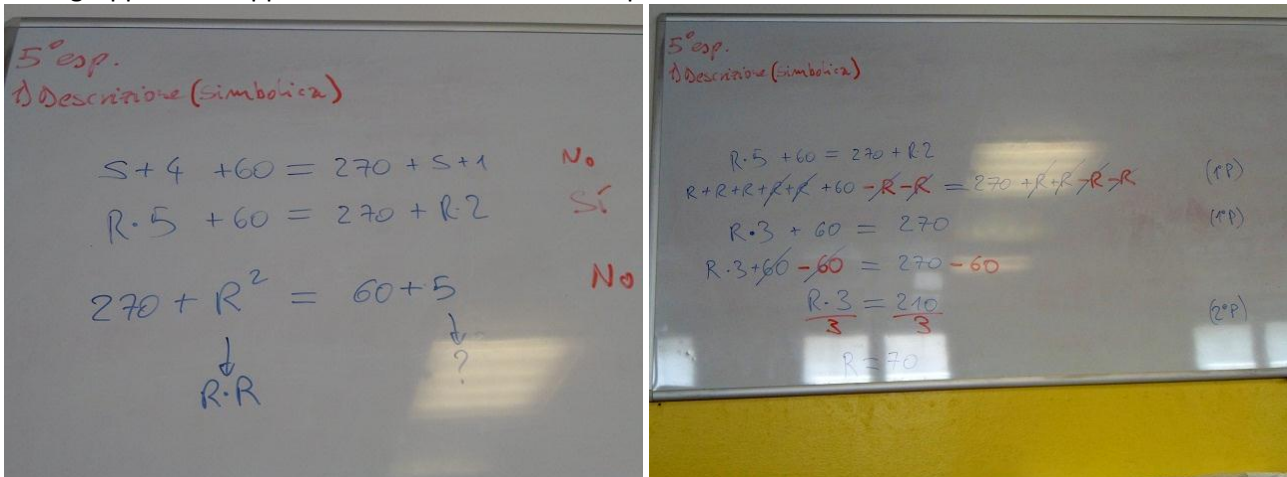 5° esp.
1) Descrizione (simbolica)
S+4 +60 = 270 + S+1 No
R·5 +60 = 270 + R·2 Sí
270 + R² = 60+5 No
↓ ↓
R·R ?
5° esp.
1) Descrizione (simbolica)
R·5 +60 = 270 + R·2
R+R+R+R+R +60 -R-R = 270 +R+R-R-R (1°P)
R·3 + 60 = 270 (1°P)
R·3+60 -60 = 270 -60
R·3 = 210 (2°P)
3 3
R = 70